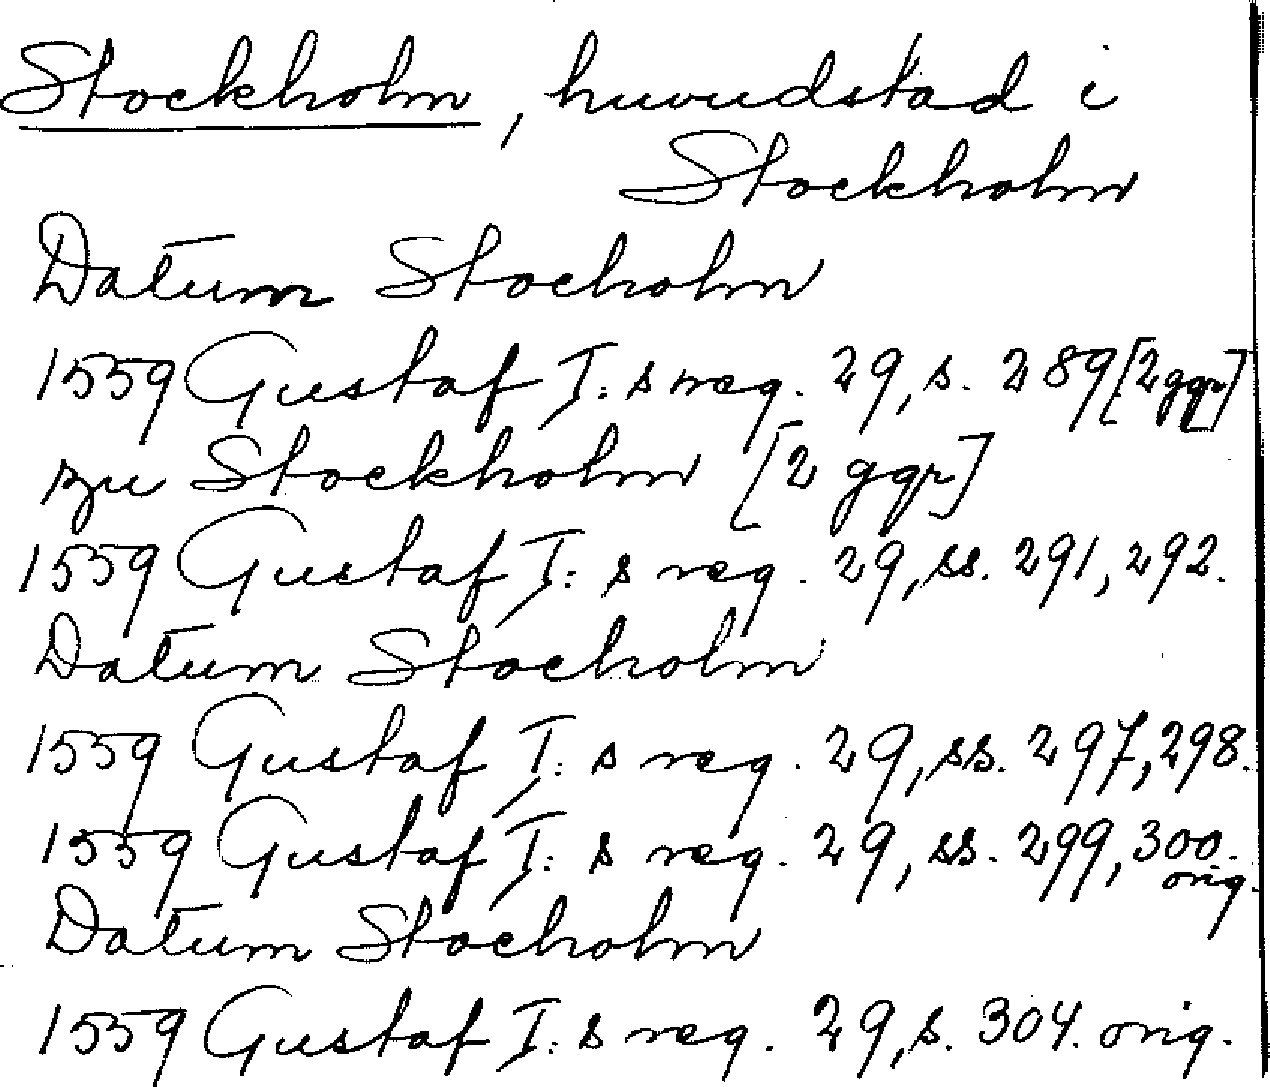 Stockholm, huvudstad i
Stockholm
Datum Stocholm
1559 Gustaf I:s reg. 29, s. 289 [2 ggr]
zu Stockholm [2 ggr]
1559 Gustaf I:s reg. 29, ss. 291, 292.
Datum Stocholm
1559 Gustaf I:s reg. 29, ss. 297, 298.
1559 Gustaf I:s reg. 29, ss. 299, 300.
orig.
Datum Stocholm
1559 Gustaf I:s reg. 29, s. 304. orig.